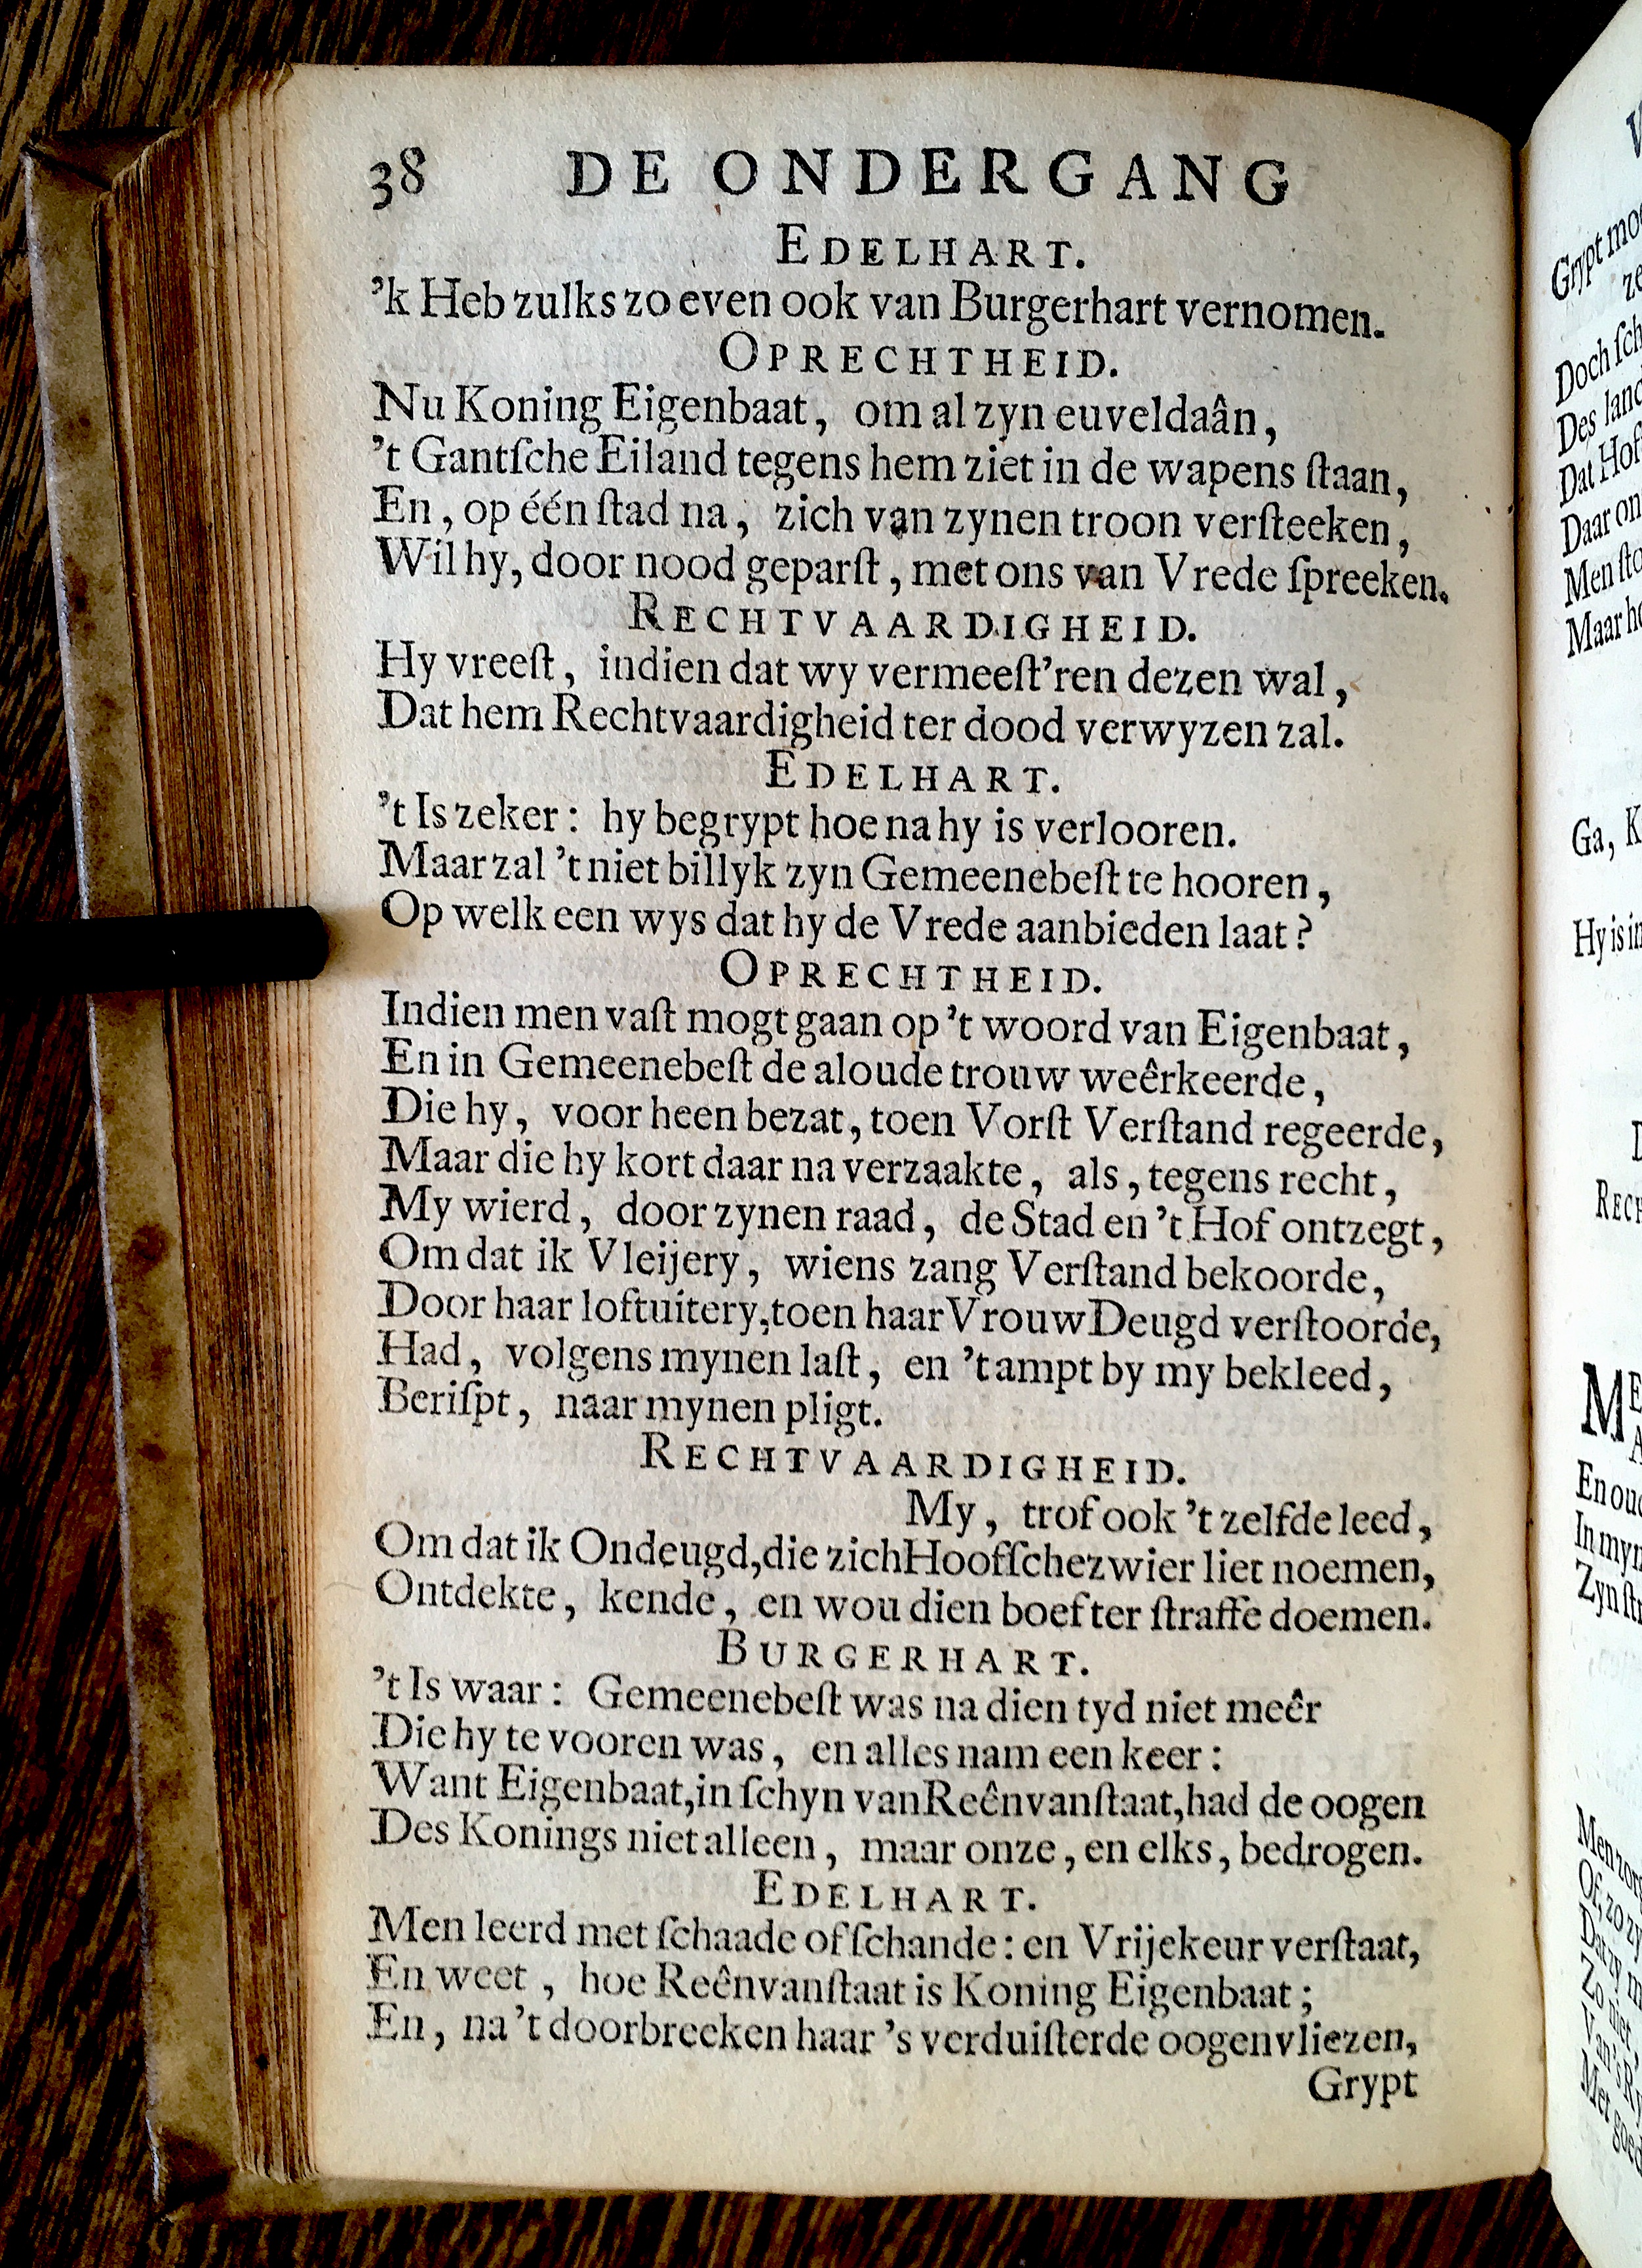 38 DE ONDERGANG
EDELHART.
’k Heb zulks zo even ook van Burgerhart vernomen.
OPRECHTHEID.
Nu Koning Eigenbaat, om al zyn euveldaân,
’t Gantſche Eiland tegens hem ziet in de wapens ſtaan,
En, op één ſtad na, zich van zynen troon verſteeken,
Wil hy, door nood geparſt, met ons van Vrede ſpreeken.
RECHTVAARDIGHEID.
Hy vreeſt, indien dat wy vermeeſt’ren dezen wal,
Dat hem Rechtvaardigheid ter dood verwyzen zal.
EDELHART.
’t Is zeker: hy begrypt hoe na hy is verlooren.
Maar zal ’t niet billyk zyn Gemeenebeſt te hooren,
Op welk een wys dat hy de Vrede aanbieden laat?
OPRECHTHEID.
Indien men vaſt mogt gaan op ’t woord van Eigenbaat,
En in Gemeenebeſt de aloude trouw weêrkeerde,
Die hy, voor heen bezat, toen Vorſt Verſtand regeerde,
Maar die hy kort daar na verzaakte, als, tegens recht,
My wierd, door zynen raad, de Stad en ’t Hof ontzegt,
Om dat ik Vleijery, wiens zang Verſtand bekoorde,
Door haar loftuitery, toen haar Vrouw Deugd verſtoorde,
Had, volgens mynen laſt, en ’t ampt by my bekleed,
Beriſpt, naar mynen pligt.
RECHTVAARDIGHEID.
My, trof ook ’t zelfde leed,
Om dat ik Ondeugd, die zich Hoofſchezwier liet noemen,
Ontdekte, kende, en wou dien boef ter ſtraffe doemen.
BURGERHART.
’t Is waar: Gemeenebeſt was na dien tyd niet meêr
Die hy te vooren was, en alles nam een keer:
Want Eigenbaat, in ſchyn van Reênvanſtaat, had de oogen
Des Konings niet alleen, maar onze, en elks, bedrogen.
EDELHART.
Men leerd met ſchaade of ſchande: en Vrijekeur verſtaat,
En weet, hoe Reênvanſtaat is Koning Eigenbaat;
En, na ’t doorbreeken haar ’s verduiſterde oogenvliezen,
Grypt
Grypt
Doch
Des
Dat Hof
Daar
Men
Maar
Ga,
Hy is
En
In